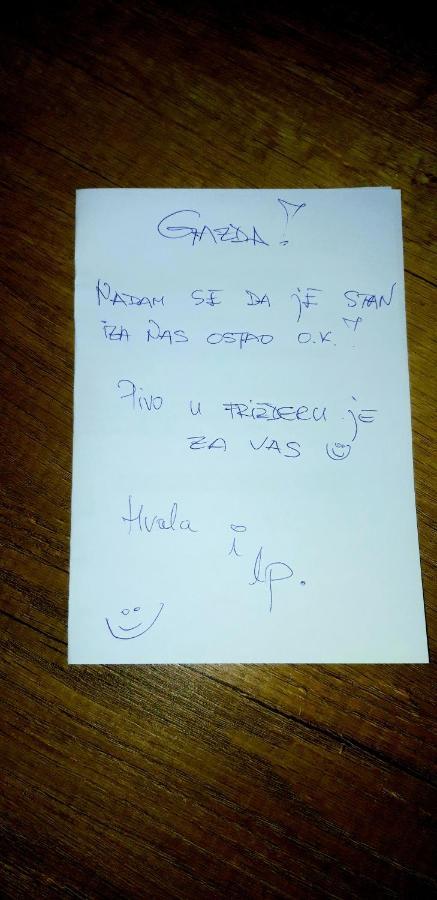 GAZDA!
NADAM SE DA JE STAN
IZA NAS OSTAO O.K.!
Pivo u FRIŽDERU je
ZA VAS ☺
Hvala i
lp.